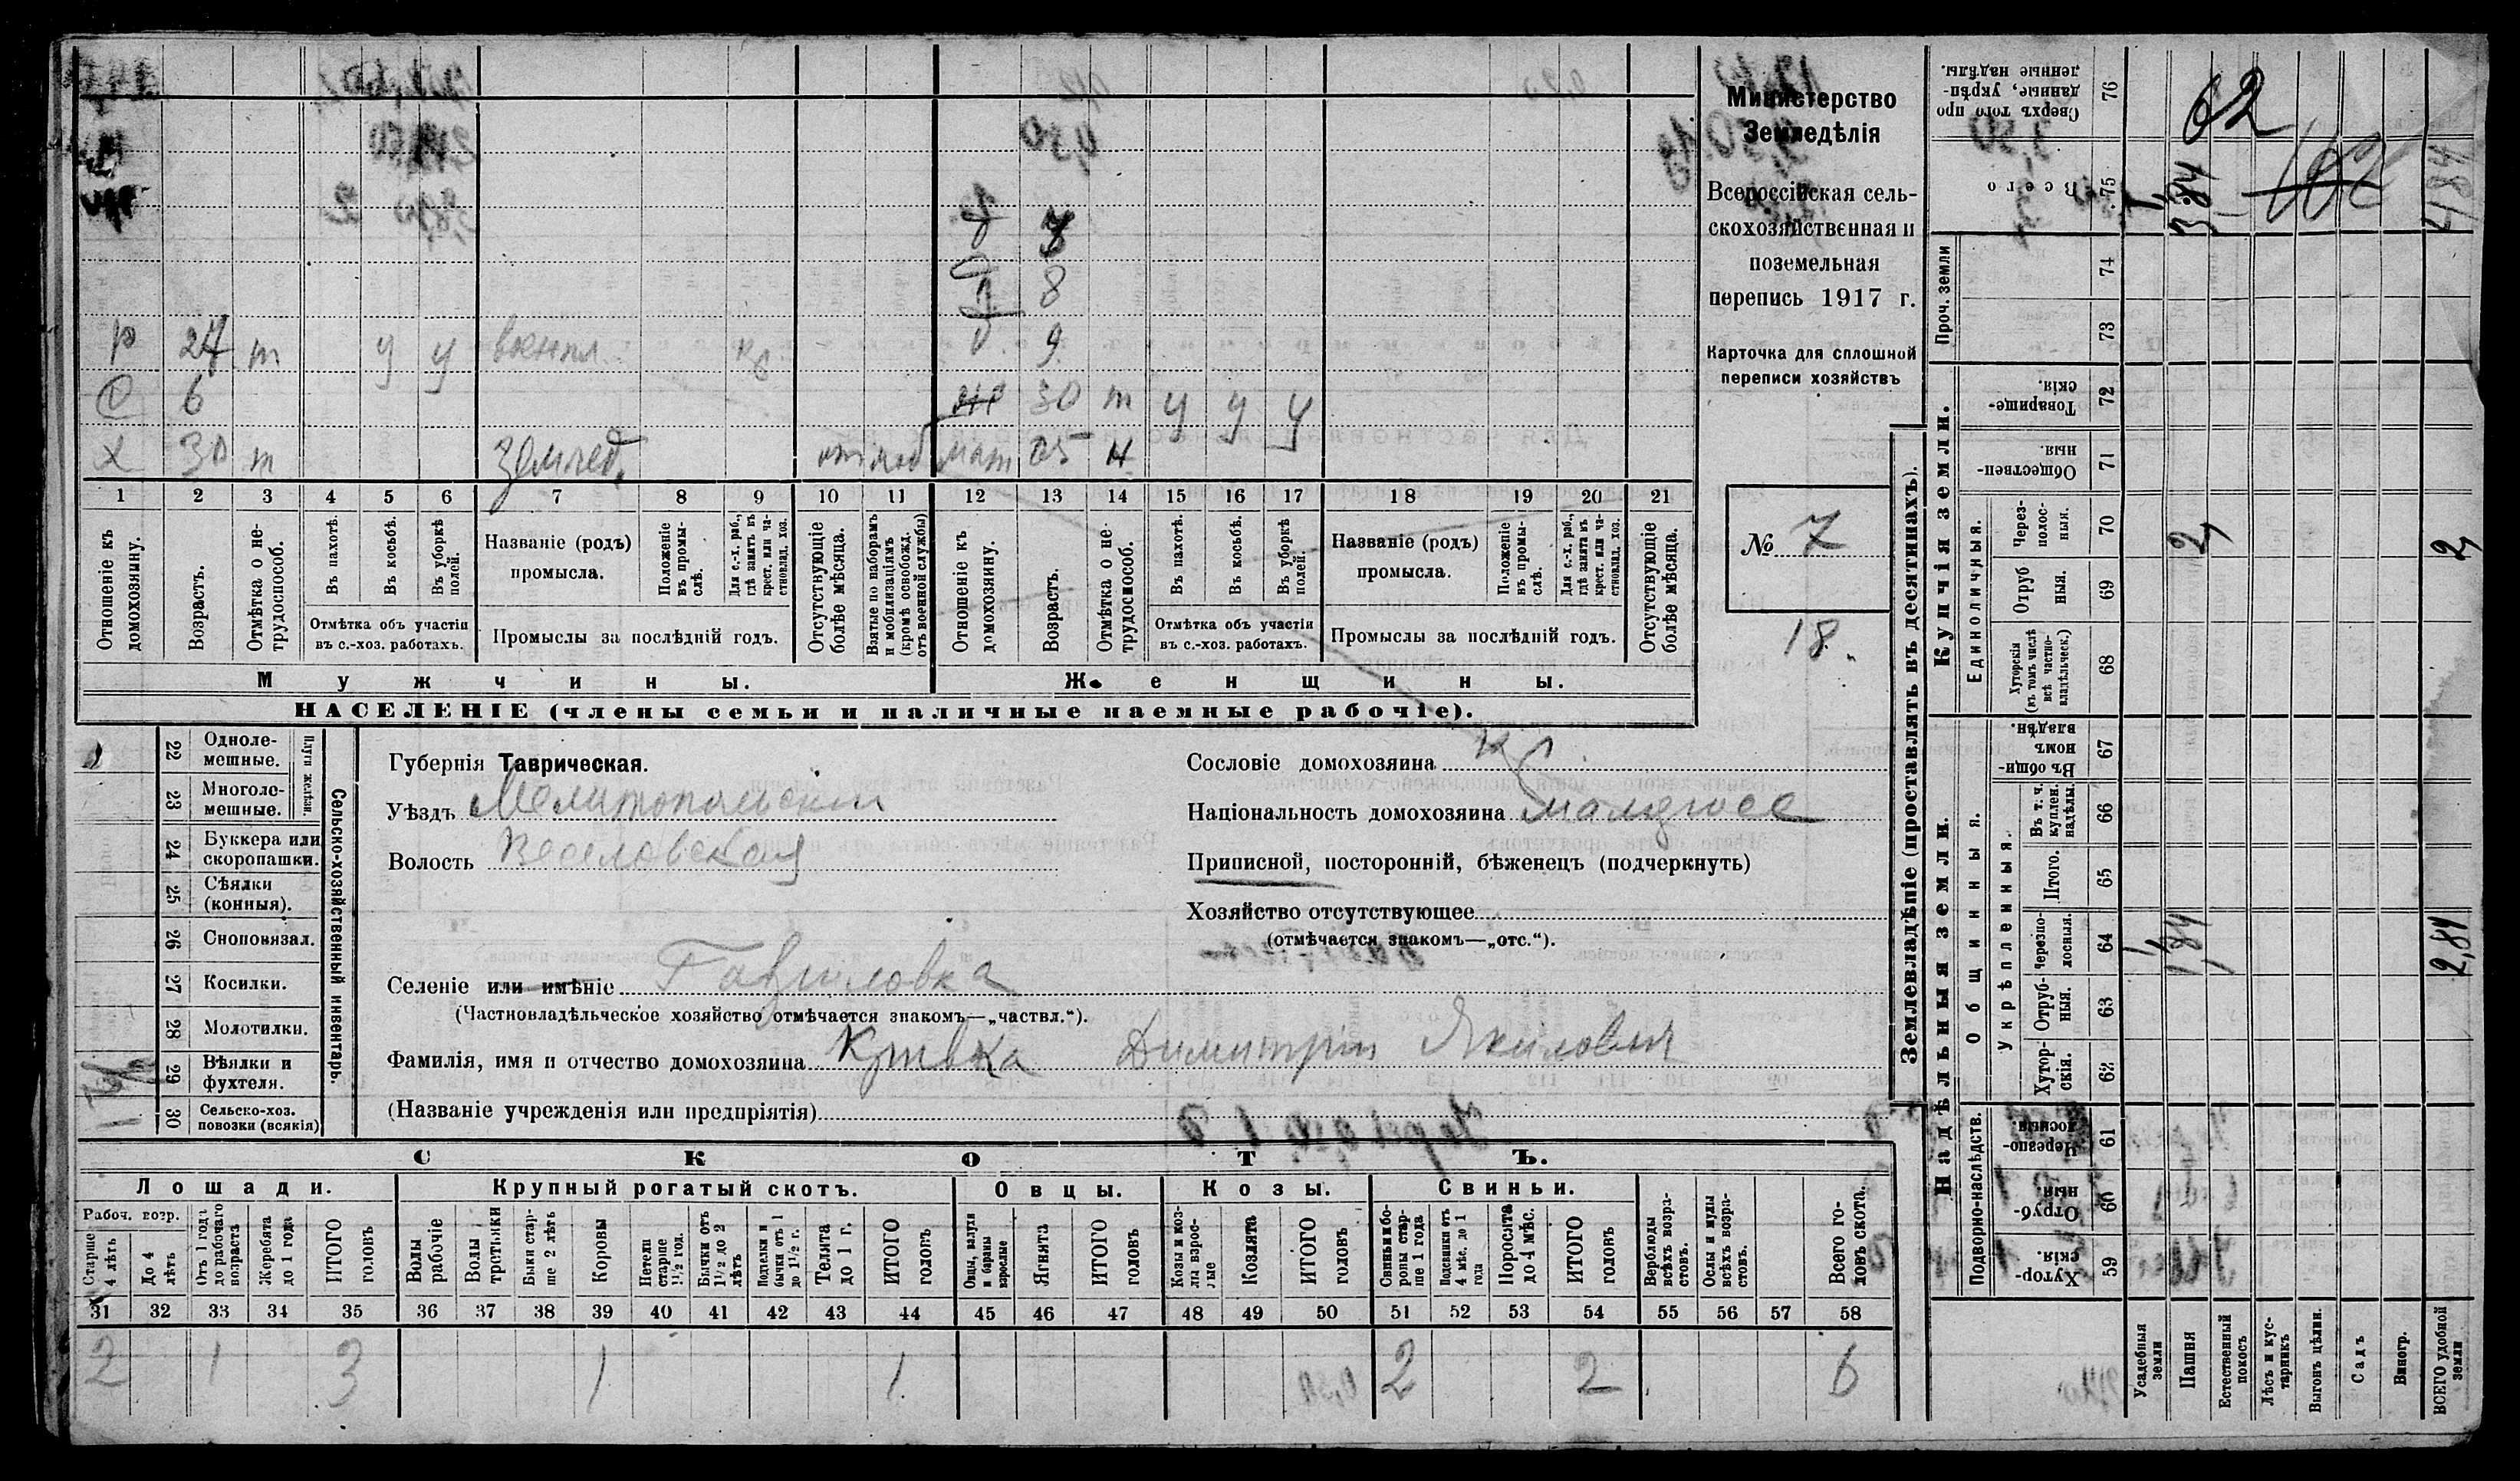 Министерство
Земледѣлія
Всероссійская сель-
скохозяйственная и
поземельная
перепись 1917 г.
Карточка для сплошной
переписи хозяйствъ
№ 7
18.
р 27 т у у
С 6
30 т у у у
Х 30 т Землед. мат 65 н
8
9
1 2 3 4 5 6 7 8 9 10 11 12 13 14 15 16 17 18 19 20 21
Отношеніе къ домохозяину.
Возрастъ.
Отмѣтка о не-трудоспособ.
Въ пахотѣ.
Въ косьбѣ.
Въ уборкѣ полей.
Отмѣтка объ участіи
въ с.-хоз. работахъ.
Названіе (родъ)
промысла.
Положеніе въ промы-слѣ.
Для с.-х. раб., гдѣ занятъ въ крест. или ча-стновлад. хоз.
Промыслы за послѣдній годъ.
Отсутствующіе болѣе мѣсяца.
Взятые по наборамъ и мобилизаціямъ (кромѣ освобожд. отъ военной службы)
Отношеніе къ домохозяину.
Возрастъ.
Отмѣтка о не-трудоспособ.
Въ пахотѣ.
Въ косьбѣ.
Въ уборкѣ полей.
Отмѣтка объ участіи
въ с.-хоз. работахъ.
Названіе (родъ)
промысла.
Положеніе въ промы-слѣ.
Для с.-х. раб., гдѣ занятъ въ крест. или ча-стновлад. хоз.
Промыслы за послѣдній годъ.
Отсутствующіе болѣе мѣсяца.
Мужчины. Женщины.
НАСЕЛЕНІЕ (члены семьи и наличные наемные рабочіе).
22 Одноле-мешные.
23 Многоле-мешные.
Плуги желѣзн.
24 Буккера или скоропашки.
25 Сѣялки (конныя).
26 Сноповязал.
27 Косилки.
28 Молотилки.
29 Вѣялки и фухтеля.
30 Сельско-хоз. повозки (всякія)
1
Сельско-хозяйственный инвентарь.
Губернія Таврическая.
Уѣздъ Мелитопольскій
Волость Веселовская
Селеніе или имѣніе Гавриловка
(Частновладѣльческое хозяйство отмѣчается знакомъ—„частвл.“).
Фамилія, имя и отчество домохозяина Кривка Димитрій Яковлевич
(Названіе учрежденія или предпріятія)
Сословіе домохозяина кр
Національность домохозяина малорос
Приписной, посторонній, бѣженецъ (подчеркнуть)
Хозяйство отсутствующее
(отмѣчается знакомъ—„отс.“).
СКОТЪ.
Лошади. Крупный рогатый скотъ. Овцы. Козы. Свиньи.
Рабоч. возр.
Старше 4 лѣтъ
До 4 лѣтъ
Отъ 1 года до рабочаго возраста
Жеребята до 1 года
ИТОГО головъ
Волы рабочіе
Волы
Быки стар-ше 2 лѣтъ
Коровы
Нетели старше 1½ год.
Бычки отъ 1½ до 2 лѣтъ
Подтелки и бычки отъ 1 до 1½ г.
Телята до 1 г.
ИТОГО головъ
Овцы, валухи и бараны взрослые
Ягнята
ИТОГО головъ
Козы и коз-лы взрос-лые
Козлята
ИТОГО головъ
Свиньи и бо-ровы стар-ше 1 года
Подсвинки отъ 4 мѣс. до 1 года
Поросята до 4 мѣс.
ИТОГО головъ
Верблюды всѣхъ возра-стовъ.
Ослы и мулы всѣхъ возра-стовъ.
Всего го-ловъ скота.
31 32 33 34 35 36 37 38 39 40 41 42 43 44 45 46 47 48 49 50 51 52 53 54 55 56 57 58
2 1 3 1 1 2 2 6
Землевладѣніе (проставлять въ десятинахъ).
Купчія земли.
Надѣльныя земли.
Сверхъ того про-данные, укрѣп-ленные надѣлы. 76
Всего 75 3,84 4,84
62
Проч. земли 74 73
Товарище-скія. 72
Обществен-ныя. 71
Единоличныя.
Через-полос-ныя. 70 2 2
Отруб-ныя. 69
Хуторскія (въ томъ числѣ всѣ частно-владѣльческ.) 68
Общинныя.
Въ общин-номъ владѣн. 67
Укрѣпленныя.
Въ т. ч. куплен. надѣлы. 66
Итого. 65
Черезпо-лосныя. 64 1,84 2,84
Отруб-ныя. 63
Хутор-скія. 62
Подворно-наслѣдств.
Черезпо-лосныя. 61
Отруб-ныя 60
Хутор-скія. 59
Усадебныя земли
Пашня
Естественный покосъ
Лѣсъ и кус-тарникъ
Выгонъ цѣлин.
Садъ
Виногр.
ВСЕГО удобной земли